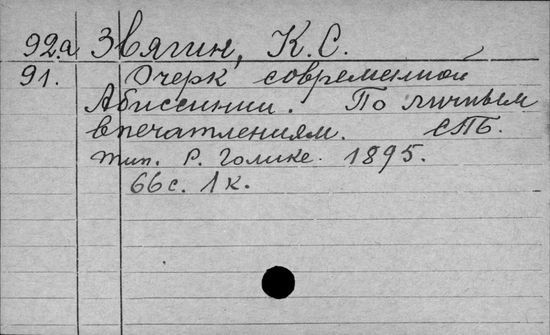 92.а Звягин, К.С.
91. Очерк современной
Абиссинии. По личным
впечатлениям. СПБ.
тип. Р. Голике. 1895.
66 с. 1 к.